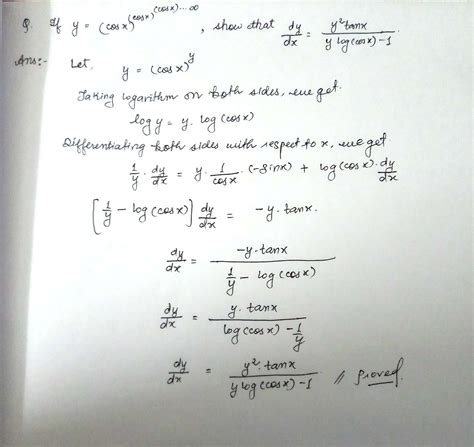 Q. If y = (cosx)^(cosx)^(cosx)...∞, show that dy/dx = y²tanx / y log(cosx)-1
Ans:- Let, y = (cosx)^y
Taking logarithm on both sides, we get.
log y = y. log(cosx)
Differentiating both sides with respect to x, we get
1/y · dy/dx = y · 1/cosx · (-sinx) + log(cosx) · dy/dx
[1/y - log(cosx)] dy/dx = -y·tanx.
dy/dx = -y·tanx / 1/y - log(cosx)
dy/dx = y·tanx / log(cosx) - 1/y
dy/dx = y²·tanx / y log(cosx)-1 // Proved.